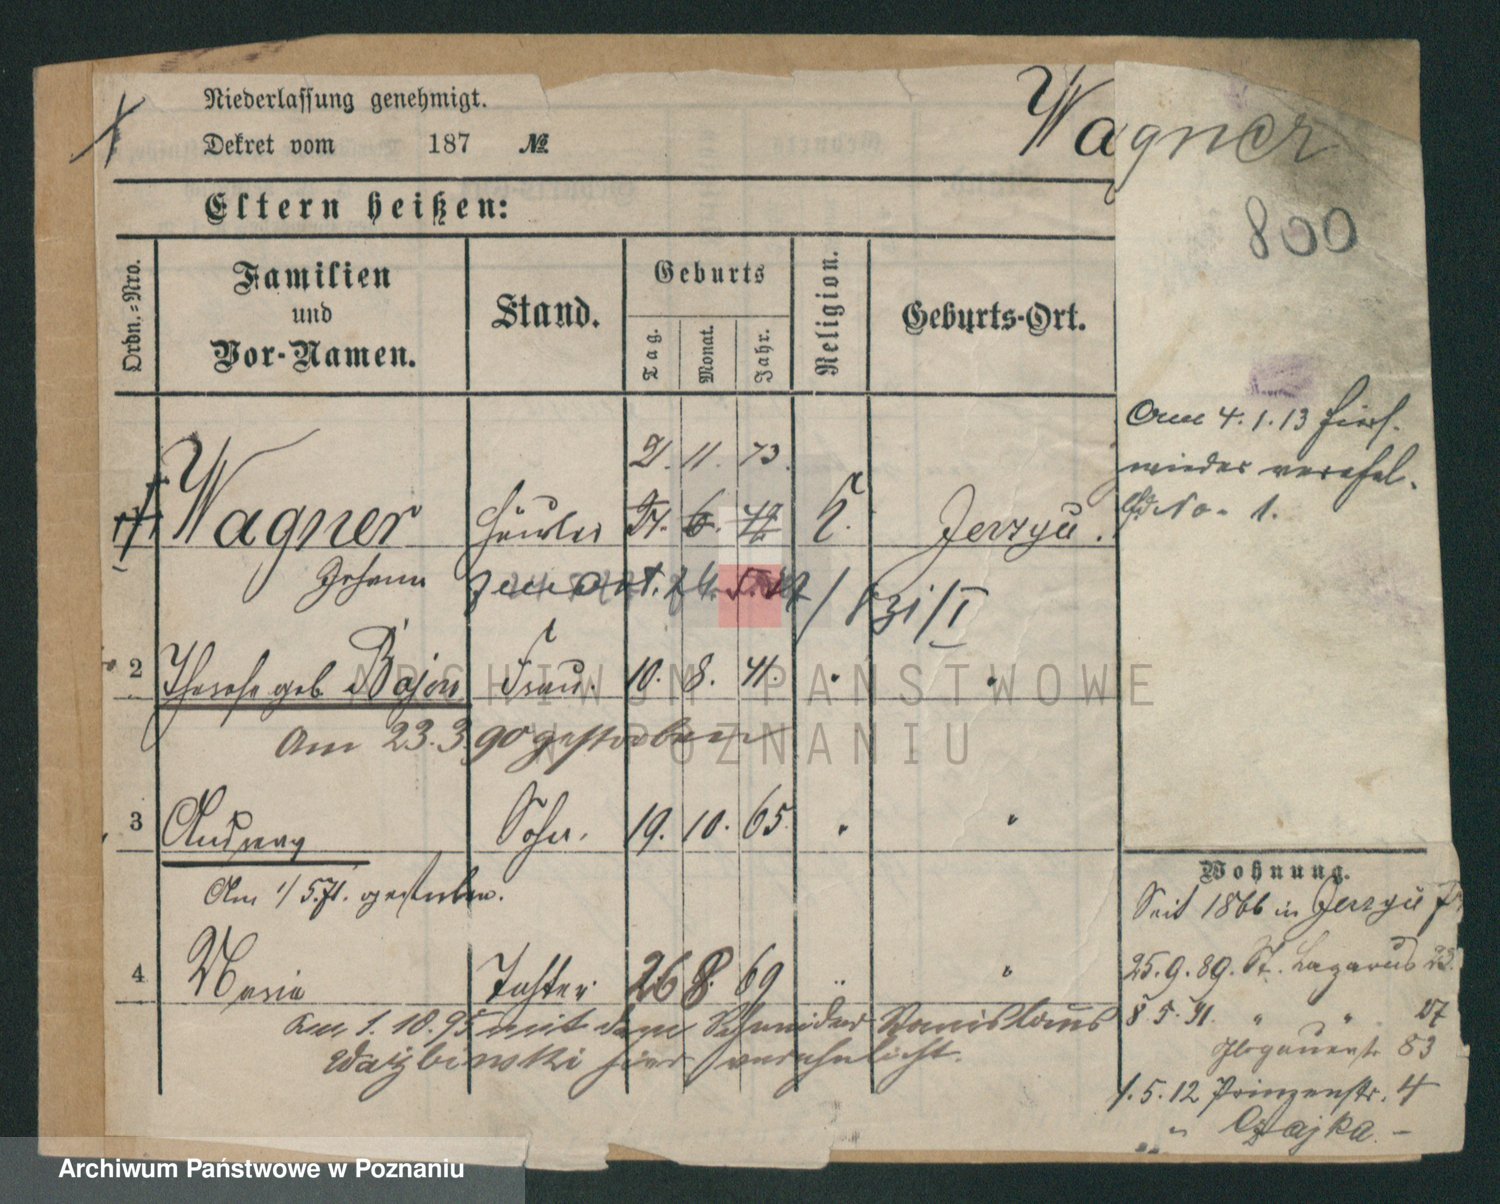 Niederlassung genehmigt.
Dekret vom 187 №
Wagner
800
Eltern heißen:
Ordn.-Nro.
Familien
und
Vor-Namen.
Stand.
Geburts
Tag.
Monat.
Jahr.
Religion.
Geburts-Ort.
11. 73.
Wagner 6. Jerzyce.
Johann
2 Therese geb. Bajon Frau. 10. 8. 41.
Am 23.3.90 gestorben
3 Andreas Sohn. 19. 10. 65.
Am 1/5.71. gestorben.
4 Maria Tochter 26 8. 69
Am 1.10.95 mit dem Schneider Stanislaus
hier verehelicht.
Am 4.1.13 hier
wieder verehel.
No. 1.
Wohnung.
Seit 1866 in Jerzyce
25.9.89. St. Lazarus
8 5.91. " "
Glogauerstr. 83
1.5.12 Prinzenstr. 4
" Czajka. –
ARCHIWUM PAŃSTWOWE
W POZNANIU
Archiwum Państwowe w Poznaniu